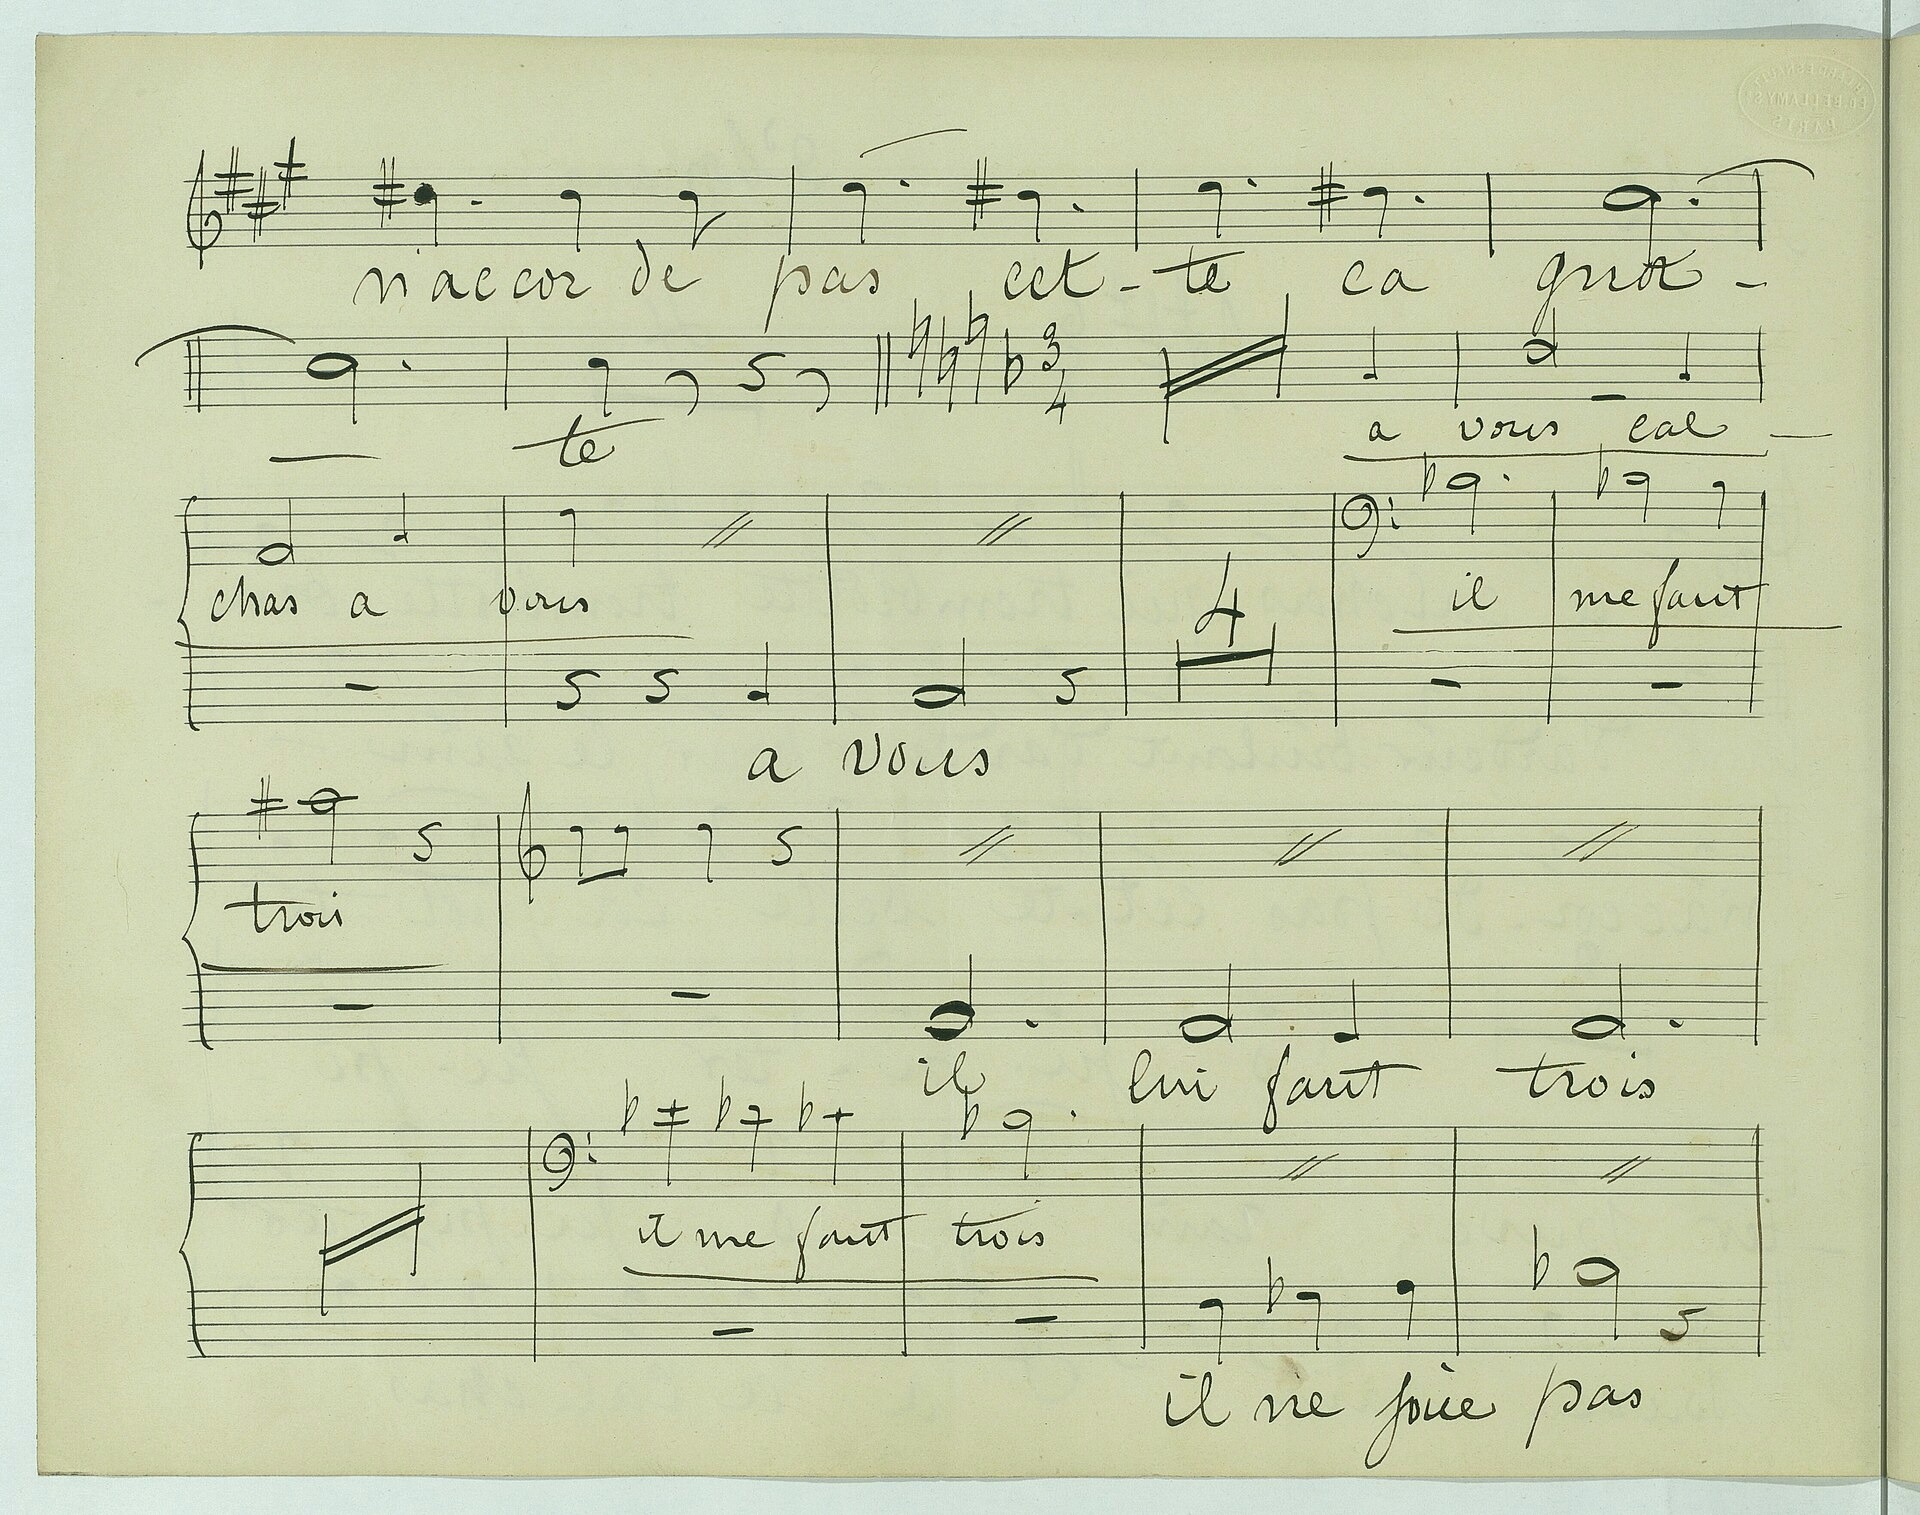 n'accor de pas cet - te ca gnot -
te
3 4
a vous cal -
chas a vous il me faut
4
a vous
trois
il lui faut trois
il me faut trois
il ne joue pas